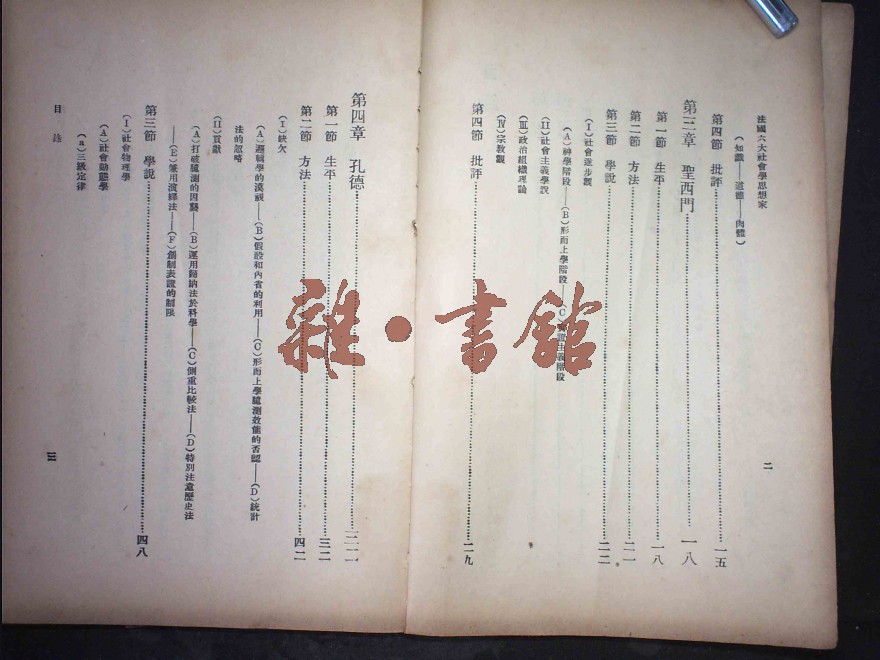 法國六大社會學思想家
二
（知識——道德——肉體）
第四節 批評……一五
第三章 聖西門……一八
第一節 生平……一八
第二節 方法……二一
第三節 學說……二二
（I）社會進步觀
（A）神學階段——（B）形而上學階段——（C）實證主義階段
（II）社會主義學說
（III）政治組織理論
（IV）宗教觀
第四節 批評……二九
第四章 孔德……三二
第一節 生平……三二
第二節 方法……四二
（I）缺欠
（A）邏輯學的漠視——（B）假設和內省的利用——（C）形而上學臆測效能的否認——（D）統計
法的忽略
（II）貢獻
（A）打破臆測的因襲——（B）運用歸納法於科學——（C）側重比較法——（D）特別注意歷史法
——（E）兼用演繹法——（F）創制表證的制限
第三節 學說……四八
（I）社會物理學
（A）社會動態學
（a）三級定律
目錄
三
雜·書館